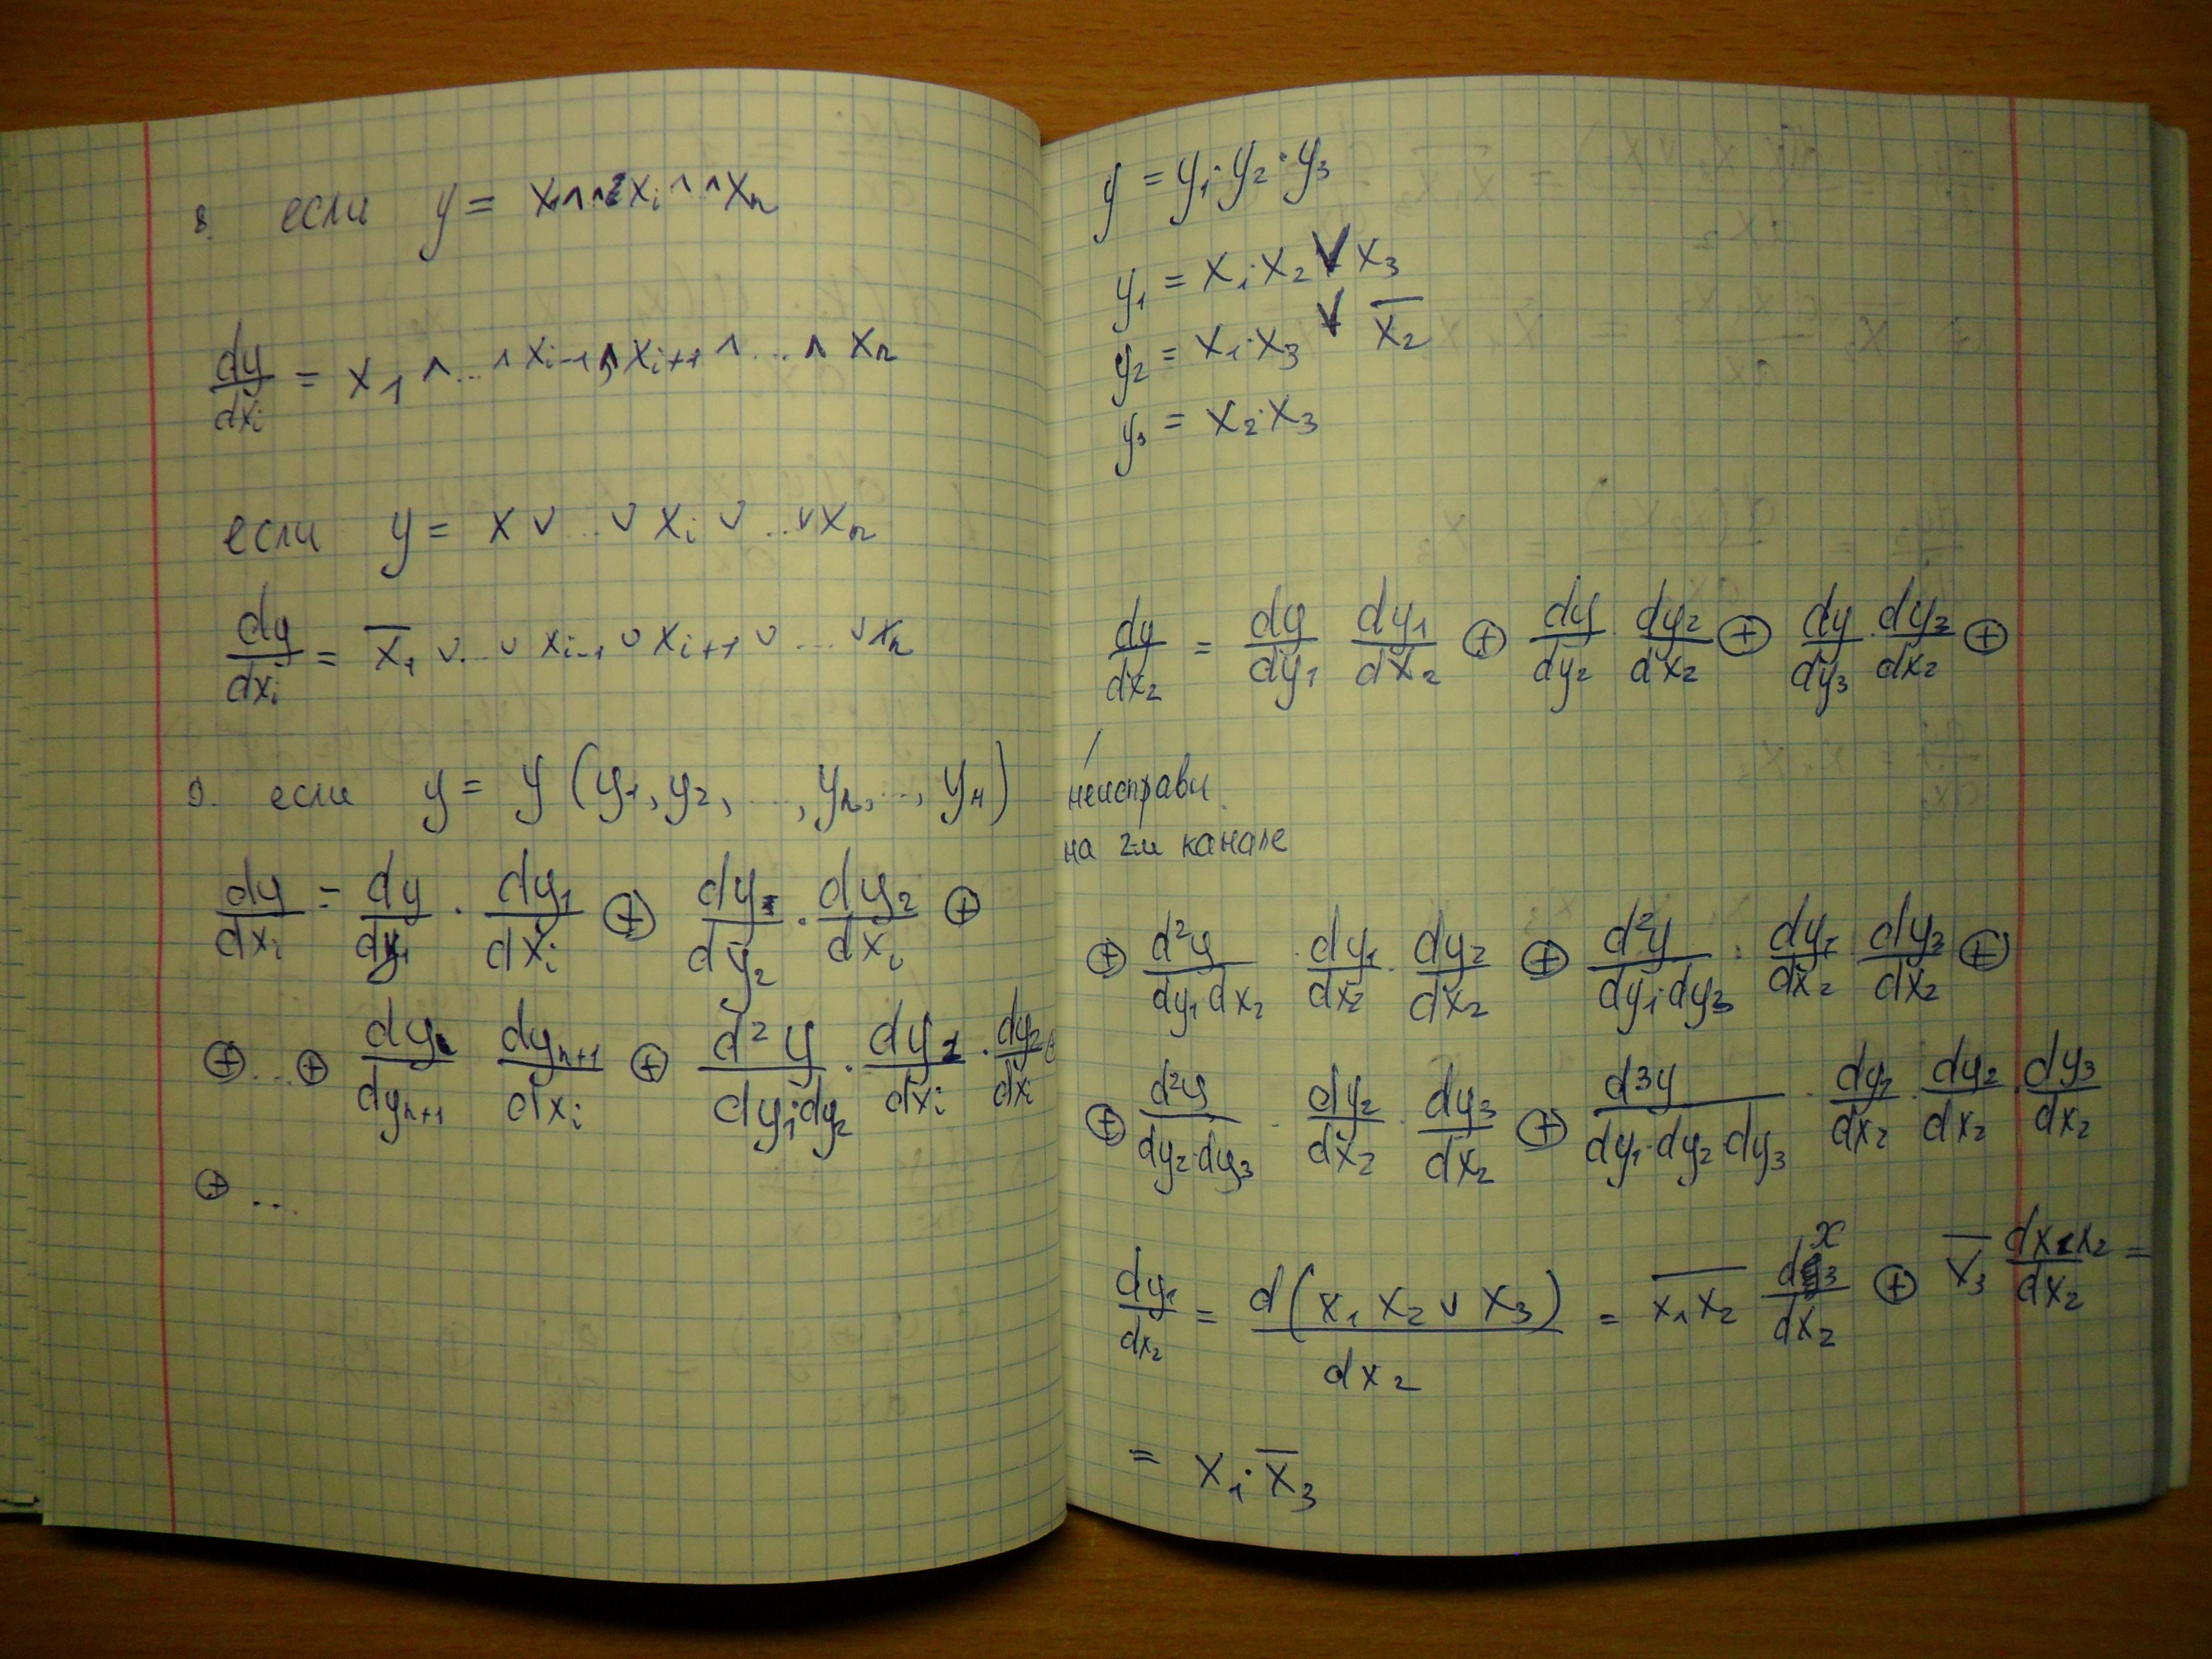 8. если y = x₁∧∧xᵢ∧∧xₙ
dy/dxᵢ = x₁ ∧...∧ xᵢ₋₁ ∧ xᵢ₊₁ ∧...∧ xₙ
если y = x ∨...∨ xᵢ ∨...∨ xₙ
dy/dxᵢ = x̅₁ ∨...∨ xᵢ₋₁ ∨ xᵢ₊₁ ∨...∨ xₙ
9. если y = y (y₁, y₂, ..., yₙ, ..., yₙ)
dy/dxᵢ = dy/dy₁ · dy₁/dxᵢ ⊕ dy/dy₂ · dy₂/dxᵢ ⊕
⊕...⊕ dy/dyₙ₊₁ dyₙ₊₁/dxᵢ ⊕ d²y/dy₁·dy₂ · dy₁/dxᵢ · dy₂/dxᵢ
⊕ ...
y = y₁·y₂·y₃
y₁ = x₁·x₂ ∨ x₃
y₂ = x₁·x₃ ∨ x̅₂
y₃ = x₂·x₃
dy/dx₂ = dy/dy₁ dy₁/dx₂ ⊕ dy/dy₂ · dy₂/dx₂ ⊕ dy/dy₃ · dy₃/dx₂ ⊕
неисправн.
на 2-м канале
⊕ d²y/dy₁·dx₂ · dy₁/dx₂ · dy₂/dx₂ ⊕ d²y/dy₁·dy₃ · dy₁/dx₂ · dy₃/dx₂ ⊕
⊕ d²y/dy₂·dy₃ · dy₂/dx₂ · dy₃/dx₂ ⊕ d³y/dy₁·dy₂·dy₃ · dy₁/dx₂ · dy₂/dx₂ · dy₃/dx₂
dy₁/dx₂ = d(x₁ x₂ ∨ x₃)/dx₂ = x̅₁x̅₂ dx₃/dx₂ ⊕ x̅₃ dx₁x₂/dx₂ =
= x₁·x̅₃